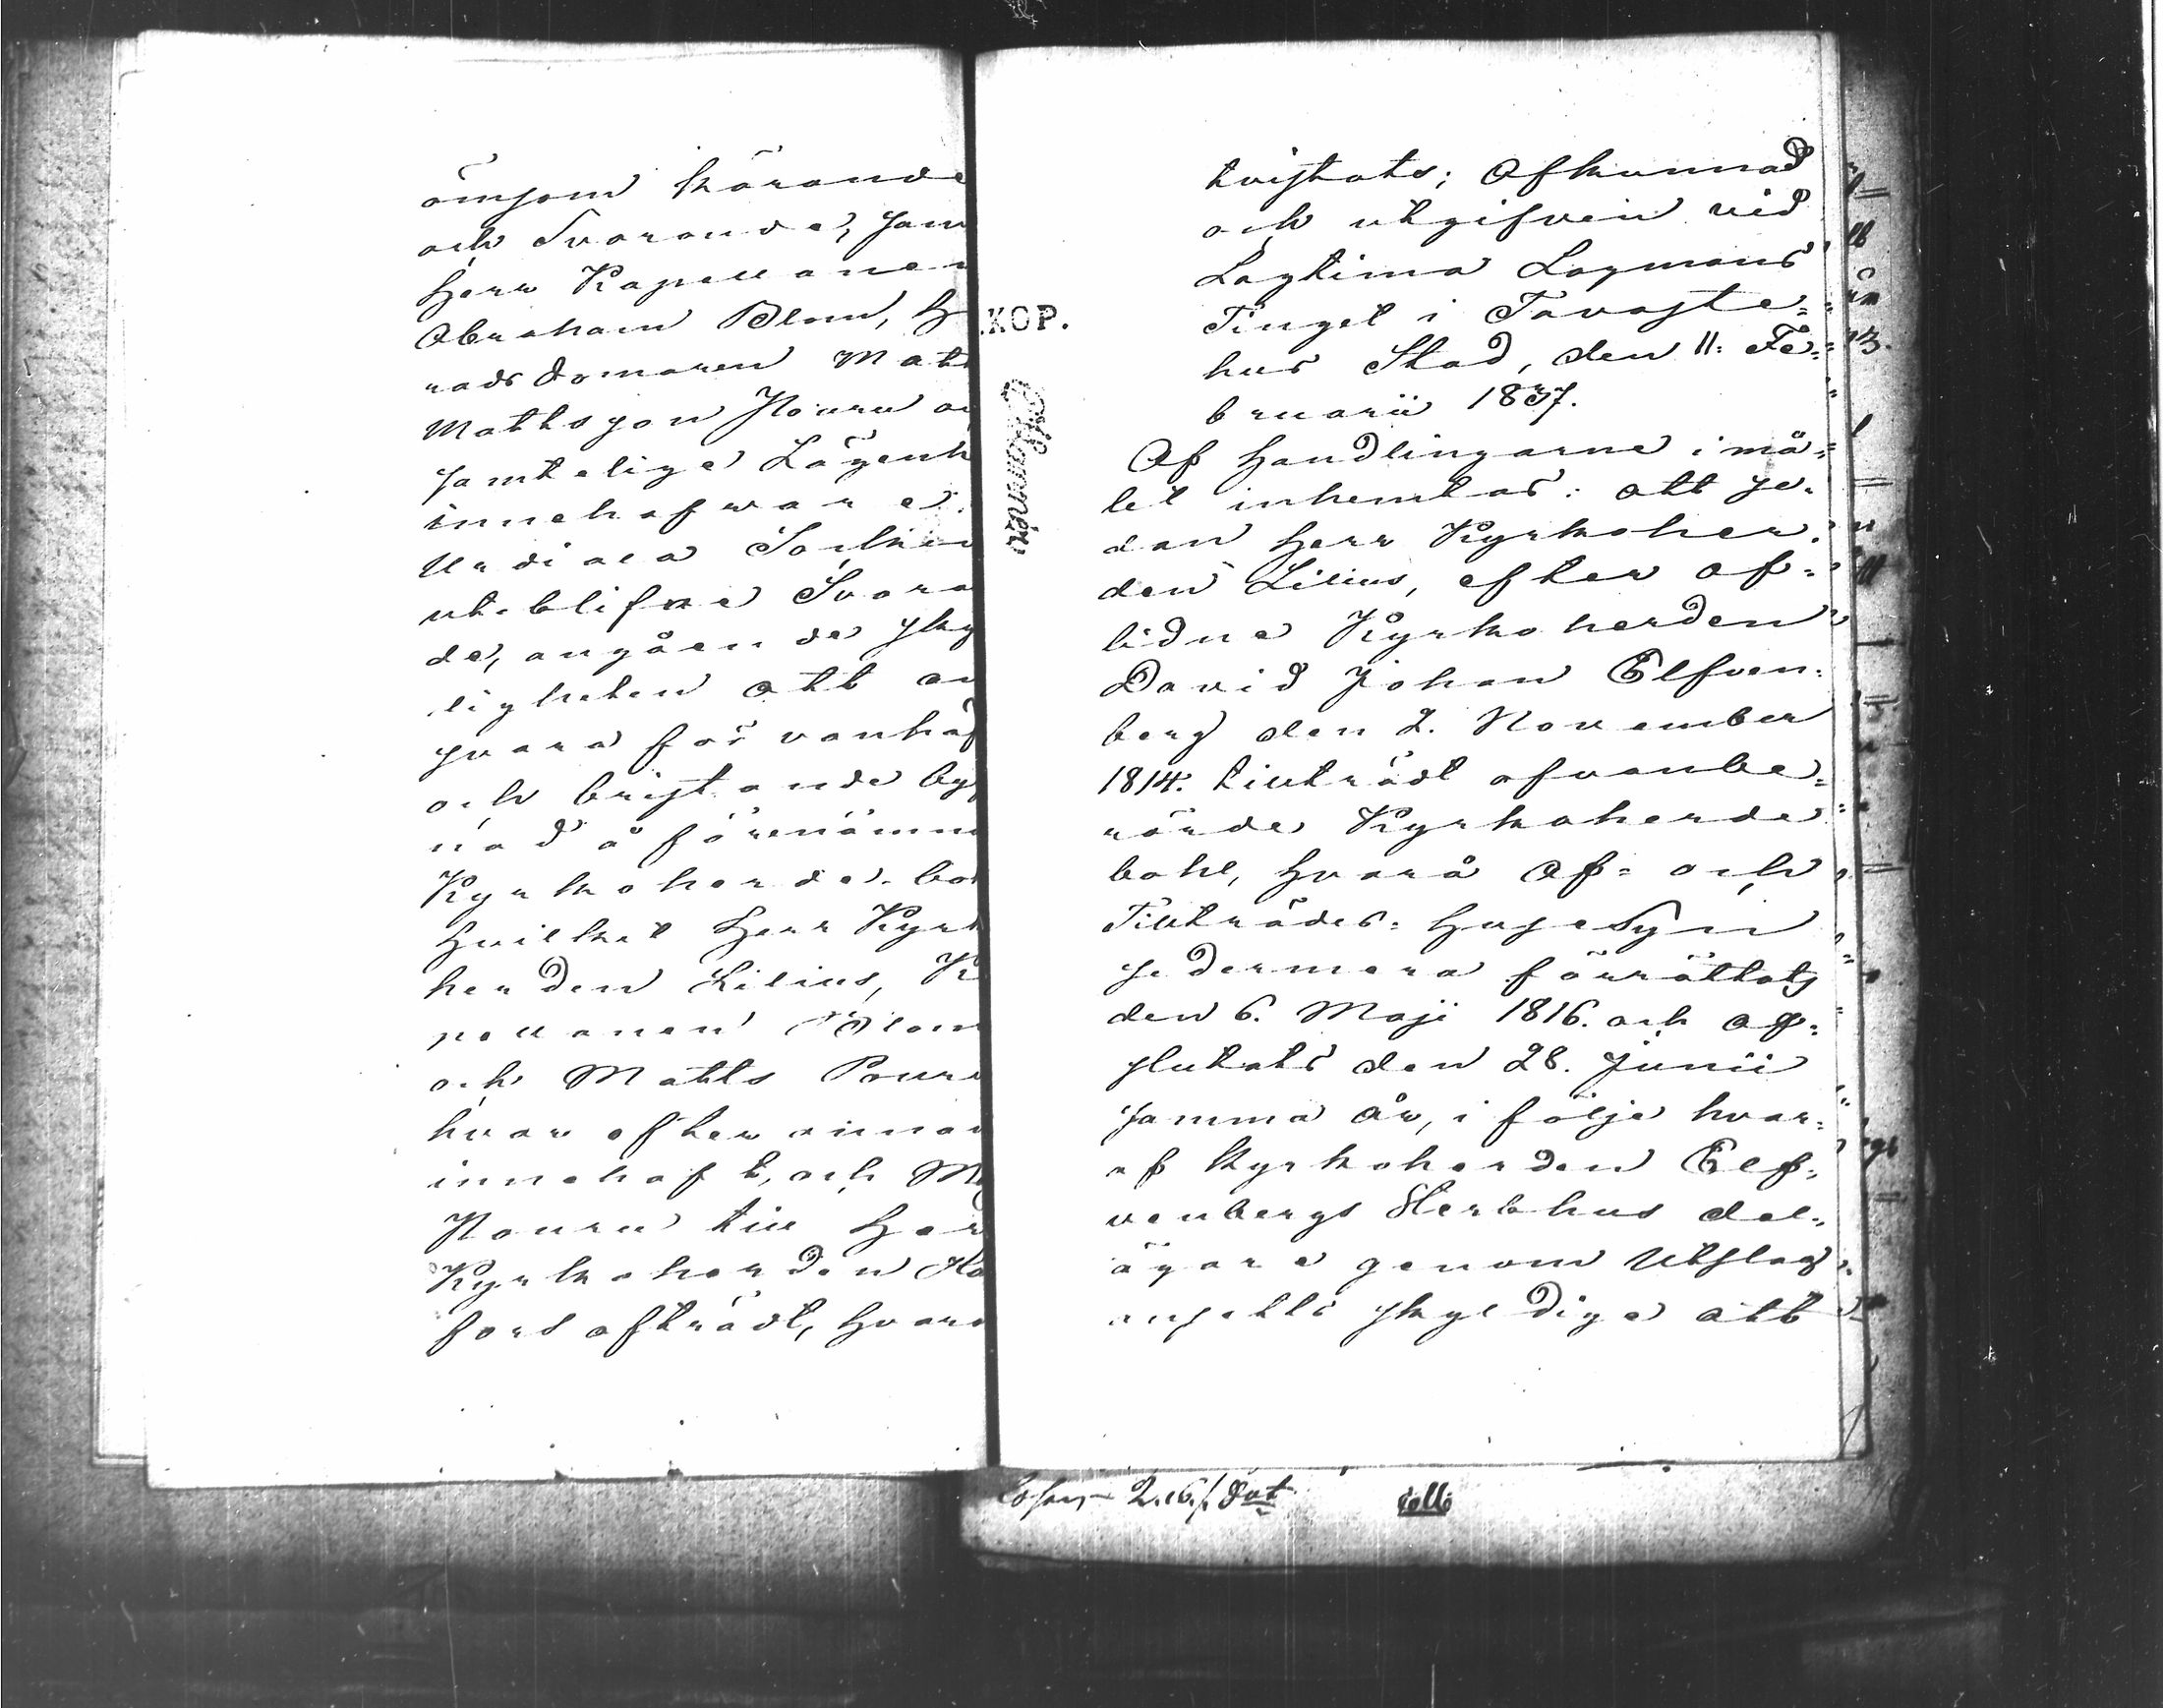 ömsom kärande
och Svarande, sam
Herr Kapellane
Abraham Blom, H
radsdomaren Matt
Mattsson Nouru o
samtelige Lägenh
innehafware
Urdiala Socken
uteblifne Svara
de, angående sky
ligheten att an
svara för vanhäf
och bristande byg
nad å förenämn
Kyrkoherde-bo
hvilket Herr Kyrk
herden Lilius, K
pellanen Blom
och Matts Pouru
hvar efter annan
innehaft, och M
Nouru till Her
Kyrkoherden
fors afträdt, hvar
KOP.
tvistats; Afkunnad
och utgifven vid
Lagtima Lagmans
Tinget i Tavaste=
hus Stad, den 11. Fe=
bruarii 1837.
Af Handlingarne i må=
let inhemtas: att se-
dan Herr Kyrkoher-
den Lilius, efter af=
lidne Kyrkoherden
David Johan Elfven=
berg den 2. November
1814. tillträdt ofvanbe=
rörde Kyrkoherde
bohl, hvarå Af= och
Tillträdes= HuseSyn
sedermera förrättats
den 6. Maji 1816. och af=
slutats den 28. Junii
samma år, i följe hvar=
af Kyrkoherden Elf=
venbergs Sterbhus del=
ägare genom Utslag
ansetts skyldige att